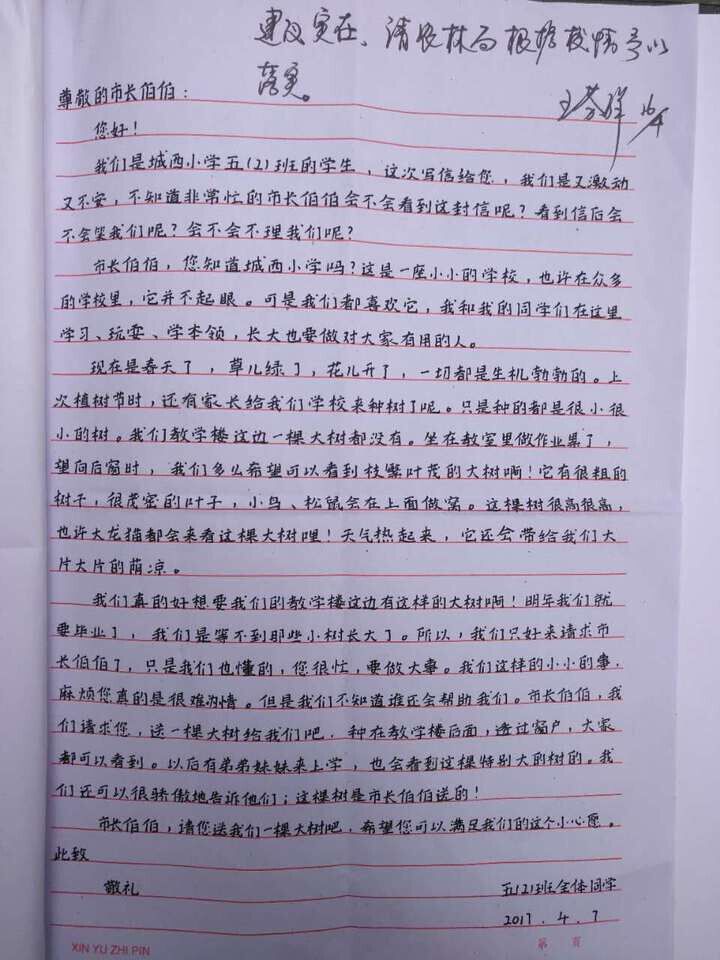 建议实在、请农林局根据校情予以
落实。
16/4
尊敬的市长伯伯：
您好！
我们是城西小学五(2)班的学生，这次写信给您，我们是又激动
又不安，不知道非常忙的市长伯伯会不会看到这封信呢？看到信后会
不会笑我们呢？会不会不理我们呢？
市长伯伯，您知道城西小学吗？这是一座小小的学校，也许在众多
的学校里，它并不起眼。可是我们都喜欢它，我和我的同学们在这里
学习、玩耍、学本领，长大也要做对大家有用的人。
现在是春天了，草儿绿了，花儿开了，一切都是生机勃勃的。上
次植树节时，还有家长给我们学校来种树了呢。只是种的都是很小很
小的树。我们教学楼这边一棵大树都没有。坐在教室里做作业累了，
望向后窗时，我们多么希望可以看到枝繁叶茂的大树啊！它有很粗的
树干，很茂密的叶子，小鸟、松鼠会在上面做窝。这棵树很高很高，
也许大龙猫都会来看这棵大树哩！天气热起来，它还会带给我们大
片大片的荫凉。
我们真的好想要我们的教学楼这边有这样的大树啊！明年我们就
要毕业了，我们是等不到那些小树长大了。所以，我们只好来请求市
长伯伯了，只是我们也懂的，您很忙，要做大事。我们这样的小小的事，
麻烦您真的是很难为情。但是我们不知道谁还会帮助我们。市长伯伯，我
们请求您，送一棵大树给我们吧，种在教学楼后面，透过窗户，大家
都可以看到。以后有弟弟妹妹来上学，也会看到这棵特别大的树的。我
们还可以很骄傲地告诉他们；这棵树是市长伯伯送的！
市长伯伯，请您送我们一棵大树吧，希望您可以满足我们的这个小心愿。
此致
敬礼
五(2)班全体同学
2017.4.7
XIN YU ZHI PIN
第 页